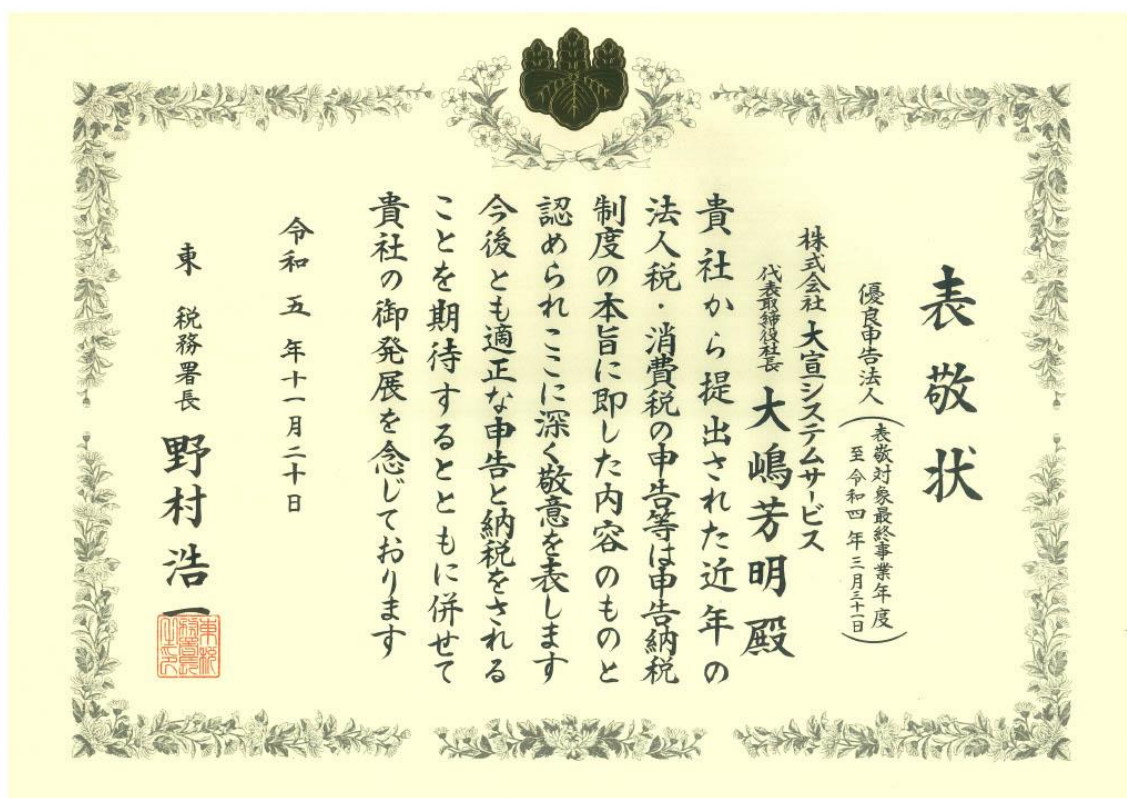 表敬状
優良申告法人
(表敬対象最終事業年度
至 令和四 年三月三十一日)
株式会社 大宣システムサービス
代表取締役社長 大嶋芳明 殿
貴社から提出された近年の
法人税・消費税の申告等は申告納税
制度の本旨に即した内容のものと
認められここに深く敬意を表します
今後とも適正な申告と納税をされる
ことを期待するとともに併せて
貴社の御発展を念じております
令和 五 年十一月二十日
東 税務署長 野村浩一
東税務署長之印